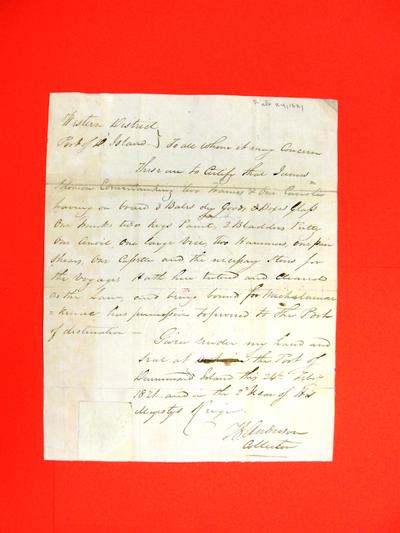 Feb 24, 1821
Western District
Port of D Island } To all whom it may Concern
These are to Certify that James
Commanding two Trains & One Cariole
having on board 3 Bales dry Goods, Boxes Glass
One trunk two Kegs Paint, 2 Bladders Putty
One Anvil One large Vice, two Hammers, One pair
Shears, One and the necessary Stores for
the Voyage Hath here Entered and Cleared
as the Law, and being bound for Michilimac
=kinac has permission to proceed to the Port
of destination —
Given under my hand and
Seal at the Port of
Drummond Island this 24th Feby
1821 and in the 2d Year of His
Majestys Reign
Anderson
Collector